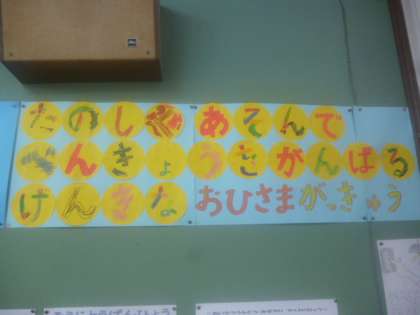 たのしくあそんで
べんきょうさがんばる
げんきなおひさまがっきゅう